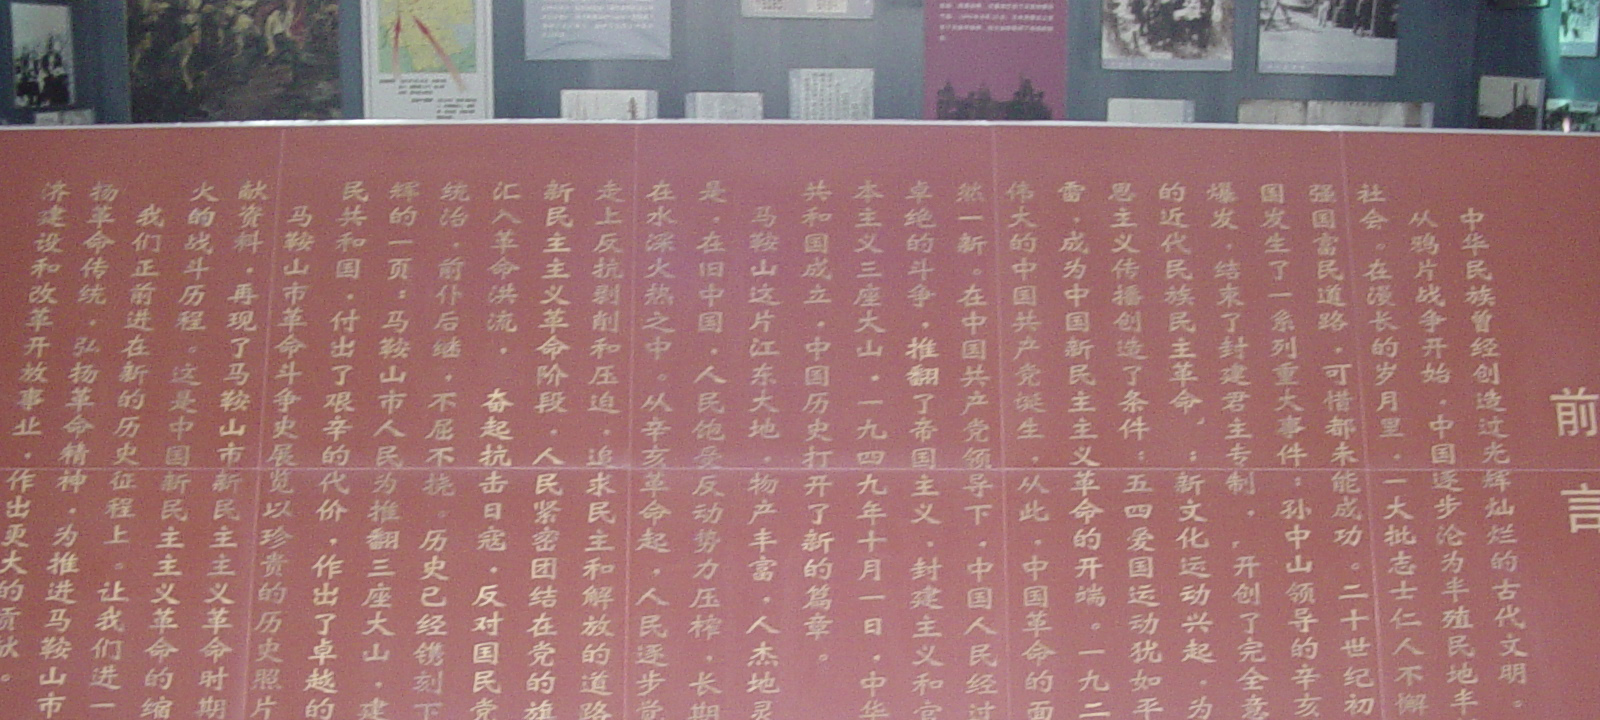 前言
中华民族曾经创造过光辉灿烂的古代文明。
从鸦片战争开始，中国逐步沦为半殖民地半
社会。在漫长的岁月里，一大批志士仁人不懈
强国富民道路，可惜都未能成功。二十世纪初
国发生了一系列重大事件：孙中山领导的辛亥
爆发，结束了封建君主专制，开创了完全意
的近代民族民主革命，；新文化运动兴起，为
思主义传播创造了条件；五四爱国运动犹如平
雷，成为中国新民主主义革命的开端。一九二
伟大的中国共产党诞生，从此，中国革命的面
然一新。在中国共产党领导下，中国人民经过
卓绝的斗争，推翻了帝国主义、封建主义和官
本主义三座大山，一九四九年十月一日，中华
共和国成立，中国历史打开了新的篇章。
马鞍山这片江东大地，物产丰富，人杰地灵
是，在旧中国，人民饱受反动势力压榨，长期
在水深火热之中。从辛亥革命起，人民逐步觉
走上反抗剥削和压迫，追求民主和解放的道路
新民主主义革命阶段，人民紧密团结在党的旗
汇入革命洪流，奋起抗击日寇，反对国民党
统治，前仆后继，不屈不挠。历史已经镌刻下
辉的一页：马鞍山市人民为推翻三座大山，建
民共和国，付出了艰辛的代价，作出了卓越的
马鞍山市革命斗争史展览以珍贵的历史照片
献资料，再现了马鞍山市新民主主义革命时期
火的战斗历程。这是中国新民主主义革命的缩
我们正前进在新的历史征程上。让我们进一
扬革命传统，弘扬革命精神，为推进马鞍山市
济建设和改革开放事业，作出更大的贡献。